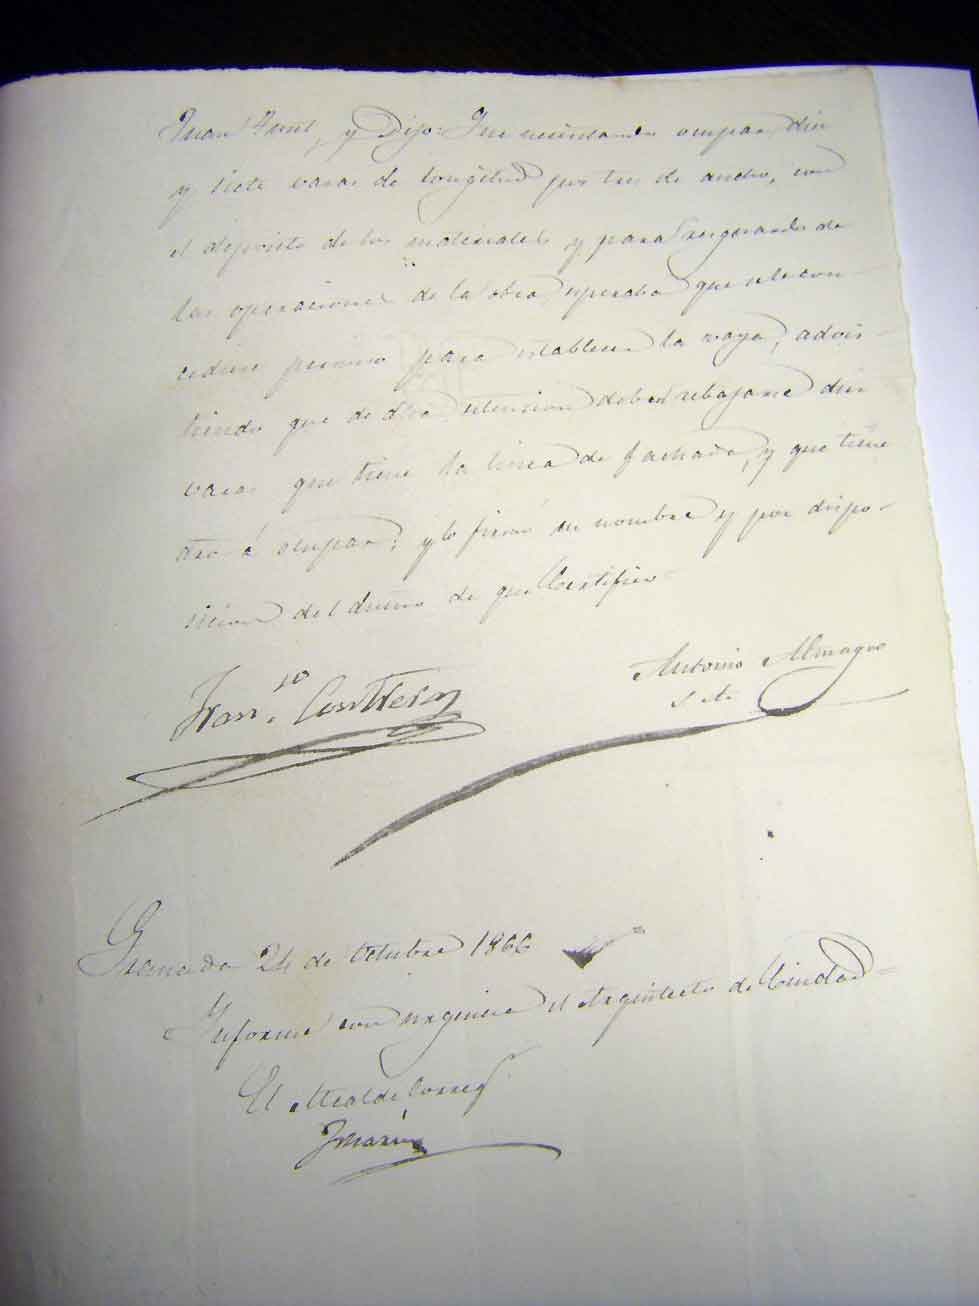 Juan y Dijo: Que necesitando ocupar diez
y siete varas de longitud por tres de ancho, con
el deposito de los materiales y para resguardo de
las operaciones de la obra esperaba que se le con-
cediese permiso para establecer la vaya, advir-
tiendo que de dha estension deben rebajarse diez
varas que tiene la linea de fachada, y que tiene
dro á ocupar; y lo firmó en nombre y por dispo-
sicion del dueño de que Certifico
Franco. Contreras
Antonio Almagro
Granada 24 de Octubre 1866
Informe con urgencia el Arquitecto de Ciudad
El Alcalde Correg